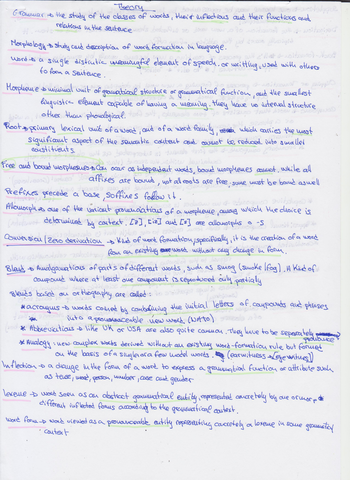 Theory
Grammar → the study of the classes of words, their inflections and their functions and
relations in the sentence
Morphology → study and description of word formation in language.
Word → a single distinctive meaningful element of speech or writting, used with others
to form a sentence.
Morpheme → minimal unit of grammatical structure or grammatical function, and the smallest
linguistic element capable of having a meaning. they have no internal structure
other than phonological.
Root → primary lexical unit of a word, and of a word family, which carries the most
significant aspect of the semantic content and cannot be reduced into smaller
constituents.
Free and bound morphemes → Can occur as independent words, bound morphemes cannot, while all
affixes are bound, not all roots are free, some must be bound as well
Prefixes precede a base, suffixes follow it.
Allomorph → one of the variant pronunciations of a morpheme, among which the choice is
determined by context. [s], [iz] and [z] are allomorphs of -s
Conversion / Zero derivation → Kind of word formation, specifically, it is the creation of a word
from an existing word without any change in form.
Blends → Amalgamations of parts of different words, such as smog (smoke | fog). A kind of
compound where at least one component is reproduced only partially
Blends based on orthography are called:
* acronyms → words coined by combining the initial letters of compounds and phrases
into a pronounceable new word (NATO)
* Abbreviations → like UK or USA are also quite common. They have to be separately pronounce
* Analogy → new complex words derived without an existing word-formation rule but formed
on the basis of a single or a few model words. (earwitness → eyewitness)
Inflection → a change in the form of a word to express a grammatical function or attribute such
as tense, mood, person, number, case and gender
Lexeme → word seen as an abstract grammatical entity, represented concretely by one or more
different inflected forms according to the grammatical context.
Word form → word viewed as a pronounceable entity representing concretely a lexeme in some grammatical
context